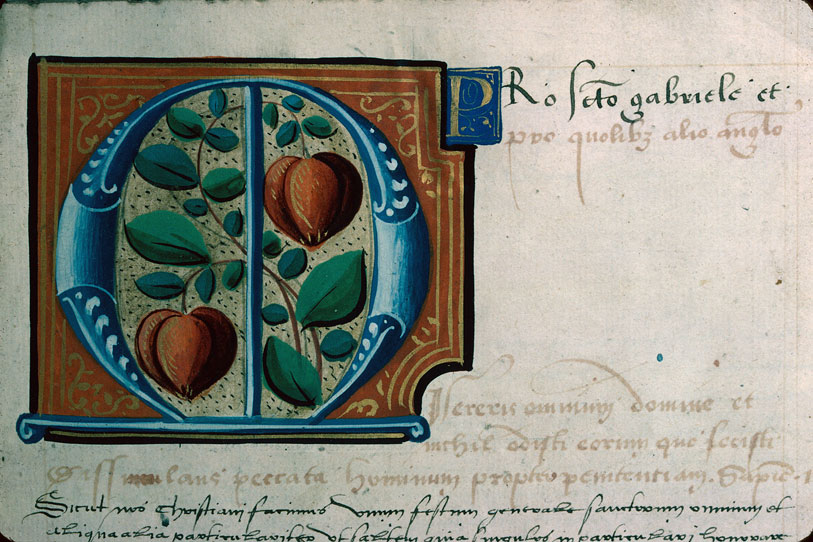 PRo scto gabriele et
pro quolibz alio anglo
Misereris omnium domine et
nichil odisti eorum que fecisti
dissimulans peccata hominum propter penitentiam. Sapie. 1
Sicut nos Christiani facimus unum festum generale sanctorum omnium et
aliqua alia particulariter ut saltem quia singulos in particulari honorare